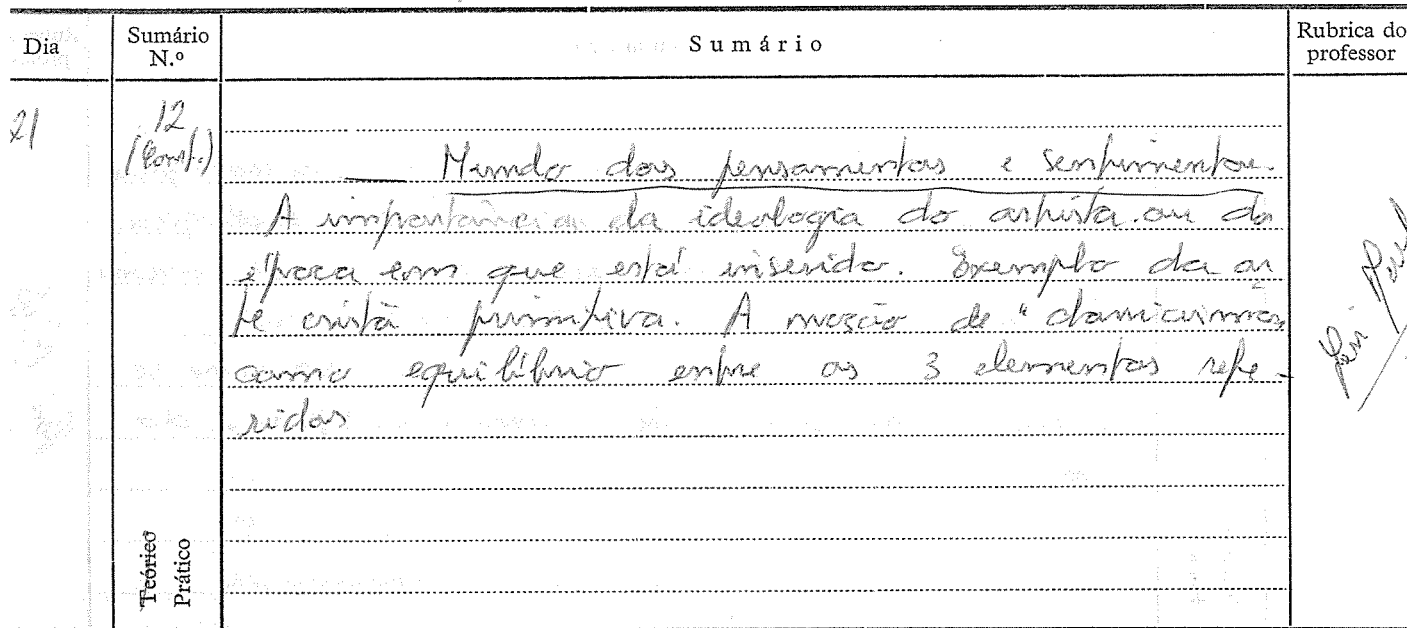 Dia
Sumário N.º
Sumário
Rubrica do professor
21
12
(Cont.)
— Mundo dos pensamentos e sentimentos.
A importância da ideologia do artista ou da
época em que está inserido. Exemplo da ar
te cristã primitiva. A noção de "classicismo
como equilíbrio entre os 3 elementos refe-
ridos
Teórico
Prático